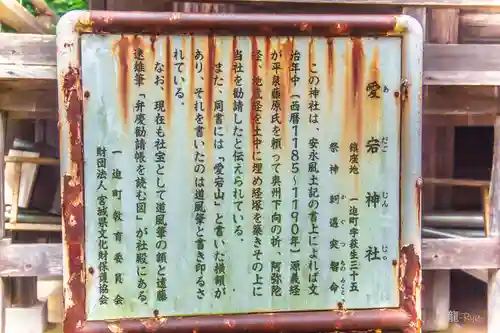 愛宕神社
あたごじんじゃ
鎮座地 一迫町字荻生三十五
祭神 軻遇突智命
かぐつちのみこと
この神社は、安永風土記の書上によれば文
治年中(西暦1185〜1190年)源義経
が平泉藤原氏を頼って奥州下向の折、阿弥陀
経、地蔵経を土中に埋め経塚を築きその上に
当社を勧請したと伝えられている。
また、同書には「愛宕山」と書いた横額が
あり、それを書いたのは道風筆と書き印るさ
れている。
なお、現在も社宝として道風筆の額と遠藤
速雄筆「弁慶勧請帳を読む図」が社殿にある。
一迫町教育委員会
財団法人 宮城県文化財保護協会
龍-Ryu-